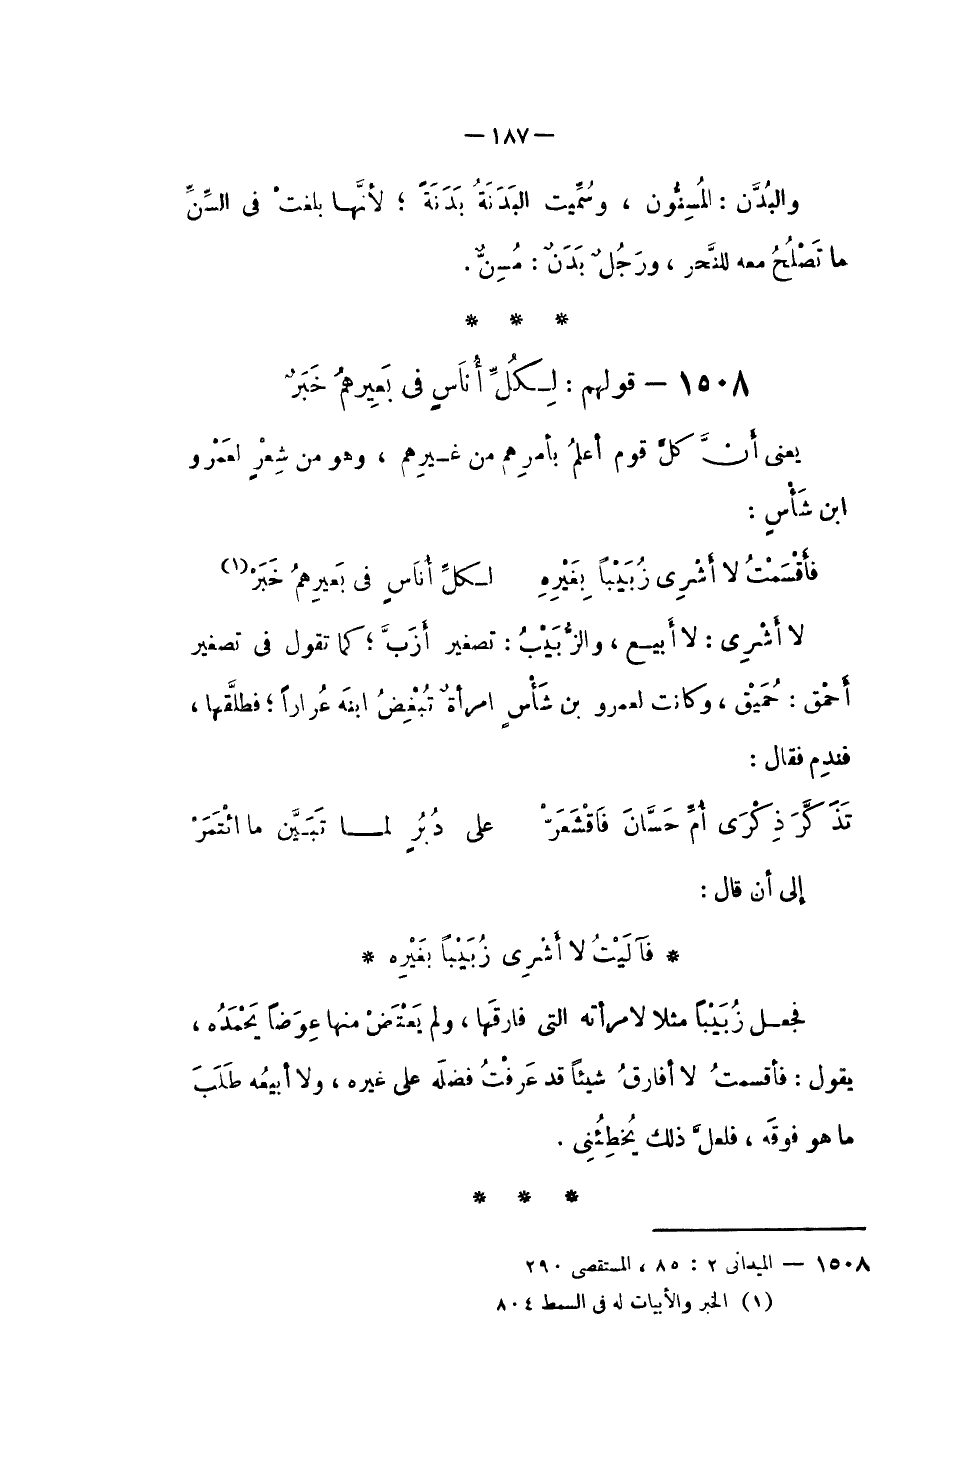 — ١٨٧ —
والبُدَّن : المُسِنُّون ، وسُمِّيت البَدَنَةُ بَدَنَةً ؛ لأنَّهـا بلغت ْ فى السِّنِّ
ما تَصْلُحُ معه للنَّحر ، ورَجُل ٌ بَدَن ٌ : مُسِنٌّ .
* * *
١٥٠٨ — قولهم : لِـكُلِّ أُنَاسٍ فى بَعِيرِهمُ خَبَرٌ
يعنى أَنَّ كلَّ قوم أعلمُ بأمرِهم من غـيرِهم ، وهو من شِعْرٍ لعَمْرو
ابن شَأْسٍ :
فأَقْسَمْتُ لا أَشْرِى زُبَيْباً بِغَيْرِهِ لـكلِّ أُنَاسٍ فى بَعيرِهمُ خَبَرْ (١)
لا أَشْرِى : لا أَبيـع ، والزُّبَيْبُ : تصغير أَزَبَّ ؛ كما تقول فى تصغير
أَحْمق : حُمَيْق ، وكانت لعمرو بن شَأْسٍ امرأة ٌ تُبْغِضُ ابنَه عُراراً ؛ فطلَّقها ،
فندِم فقال :
تَذَكَّرَ ذِكْرَى أُمِّ حَسَّانَ فَاقْشَعَرّْ على دُبُرٍ لمـــا تَبَـيَّن ما ائْتَمَرْ
إلى أن قال :
* فَآلَيْتُ لا أَشْرِى زُبَيْباً بغَيْرِه *
فجعـل زُبَيْباً مثلا لامرأته التى فارقَها ، ولم يَعْتَضْ منها عِوَضاً يَحْمَدُه ،
يقول : فأقسمتُ لا أفارقُ شيئاً قد عَرفْتُ فضلَه على غيره ، ولا أبيعُه طَلَبَ
ما هو فوقَه ، فلعلَّ ذلك يُخطِئُنِى .
* * *
١٥٠٨ — الميدانى ٢ : ٨٥ ، المستقصى ٢٩٠
(١) الخبر والأبيات له فى السمط ٨٠٤